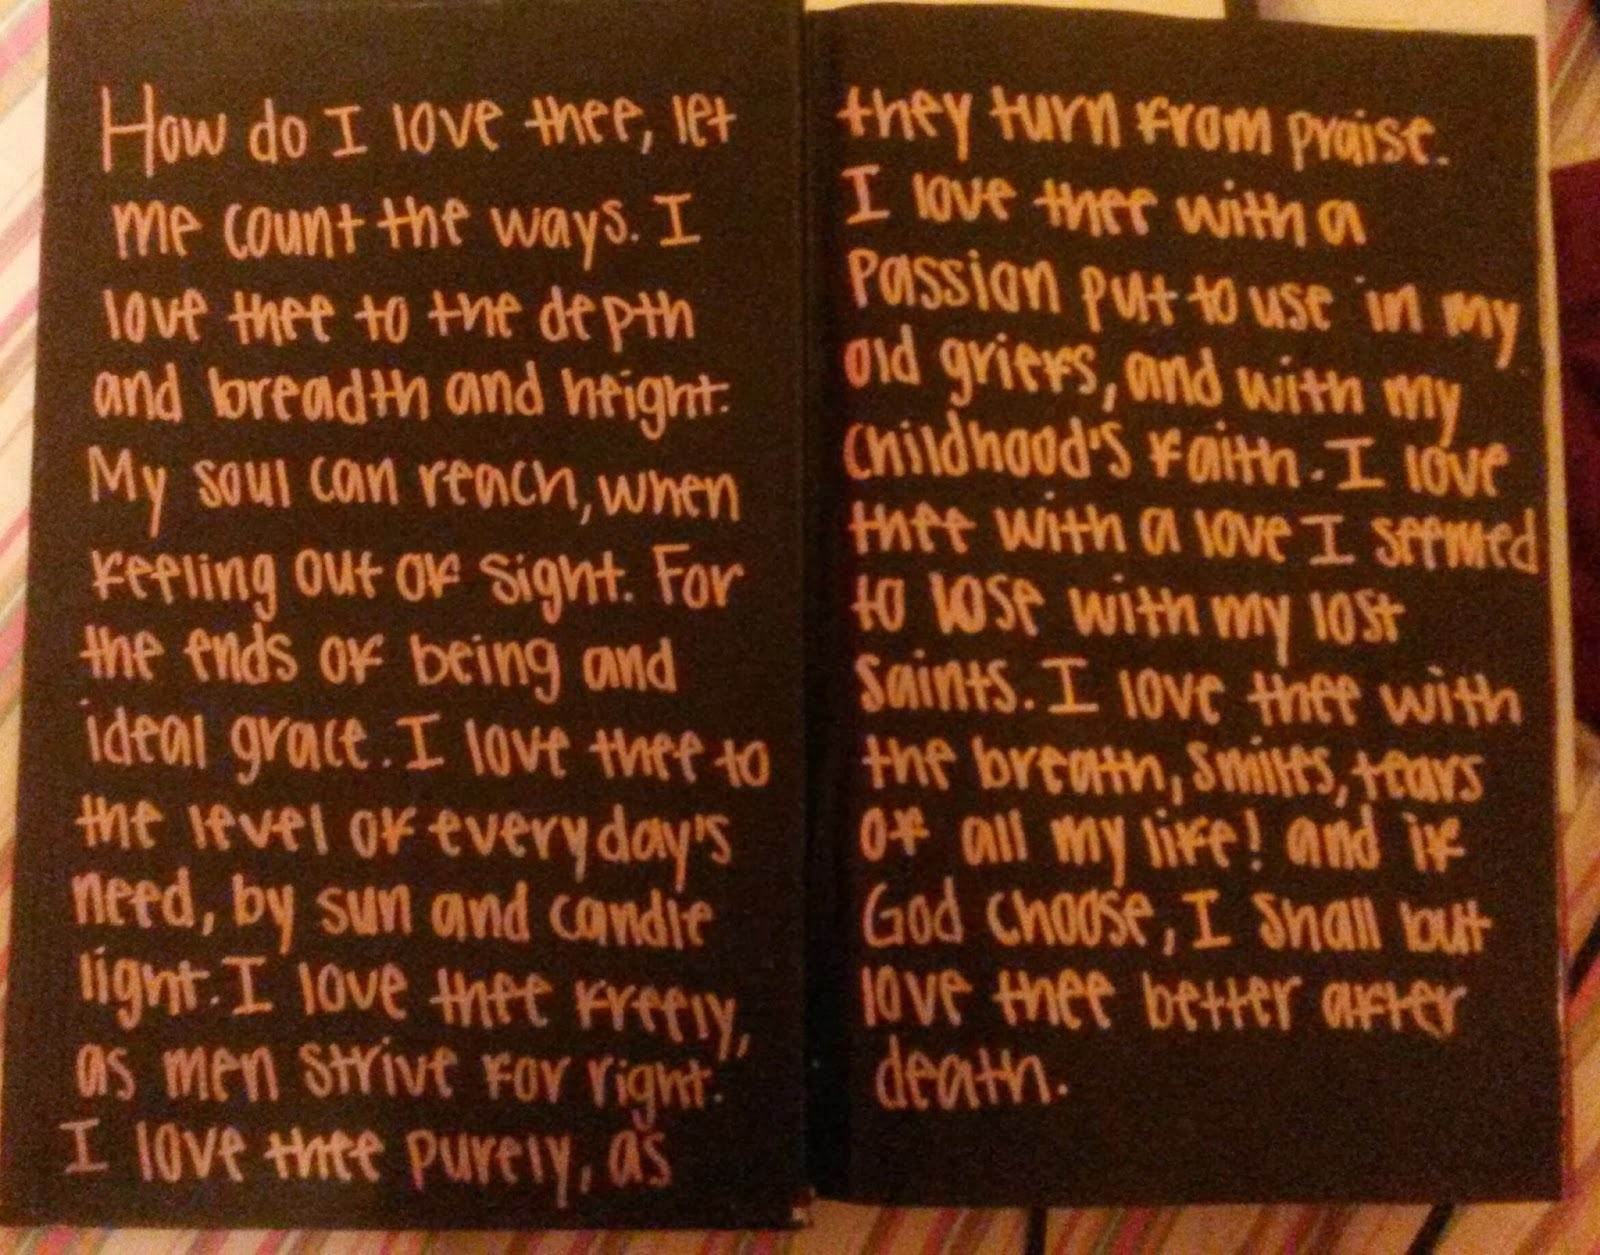 How do I love thee, let
me count the ways. I
love thee to the depth
and breadth and height.
My soul can reach, when
feeling out of sight. For
the ends of being and
ideal grace. I love thee to
the level of everyday's
need, by sun and candle
light. I love thee freely,
as men strive for right.
I love thee purely, as
they turn from praise.
I love thee with a
passion put to use in my
old griefs, and with my
childhood's faith. I love
thee with a love I seemed
to lose with my lost
saints. I love thee with
the breath, smiles, tears
of all my life! and if
God choose, I shall but
love thee better after
death.